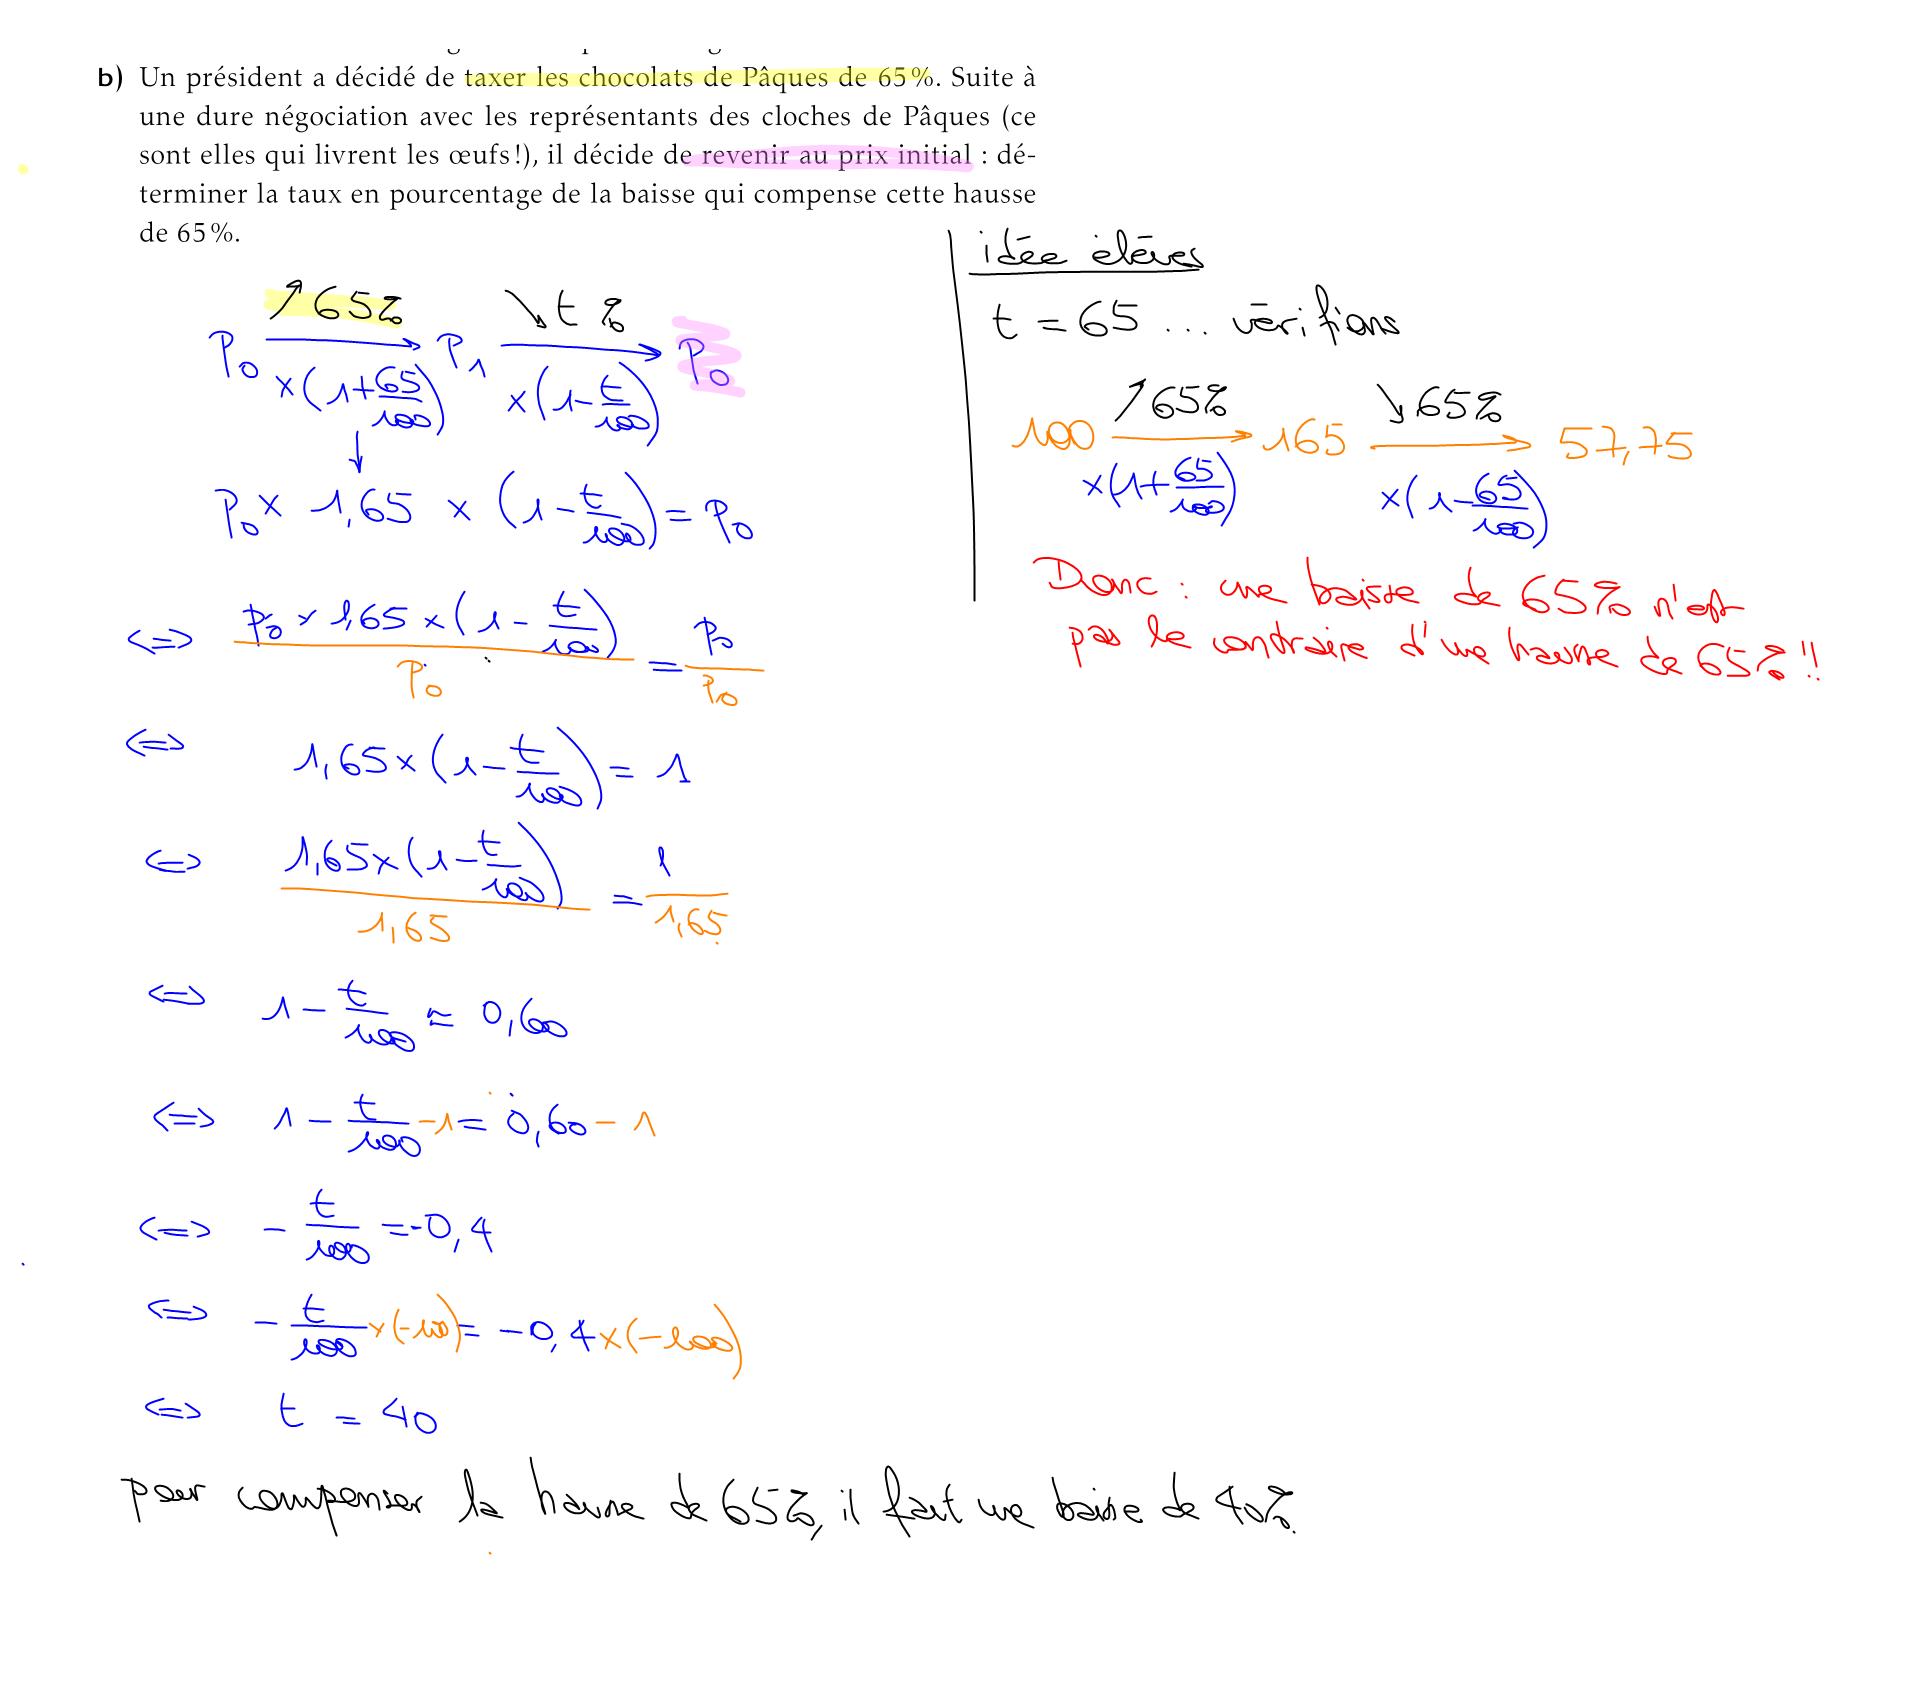 b) Un président a décidé de taxer les chocolats de Pâques de 65%. Suite à
une dure négociation avec les représentants des cloches de Pâques (ce
sont elles qui livrent les œufs!), il décide de revenir au prix initial : dé-
terminer la taux en pourcentage de la baisse qui compense cette hausse
de 65%.
↗65% ↘t %
P₀ → P₁ → P₀
×(1+65/100) ×(1-t/100)
↓
P₀ × 1,65 × (1-t/100) = P₀
<=> (P₀ × 1,65 × (1 - t/100))/P₀ = P₀/P₀
<=> 1,65×(1-t/100) = 1
<=> (1,65×(1-t/100))/1,65 = 1/1,65
<=> 1 - t/100 ≈ 0,60
<=> 1 - t/100 -1 = 0,60 - 1
<=> - t/100 = -0,4
<=> - t/100 ×(-100) = -0,4×(-100)
<=> t = 40
pour compenser la hausse de 65%, il fait une baisse de 40%.
idée élèves
t = 65 ... vérifions
↗65% ↘65%
100 → 165 → 57,75
×(1+65/100) ×(1-65/100)
Donc : une baisse de 65% n'est
pas le contraire d'une hausse de 65% !!